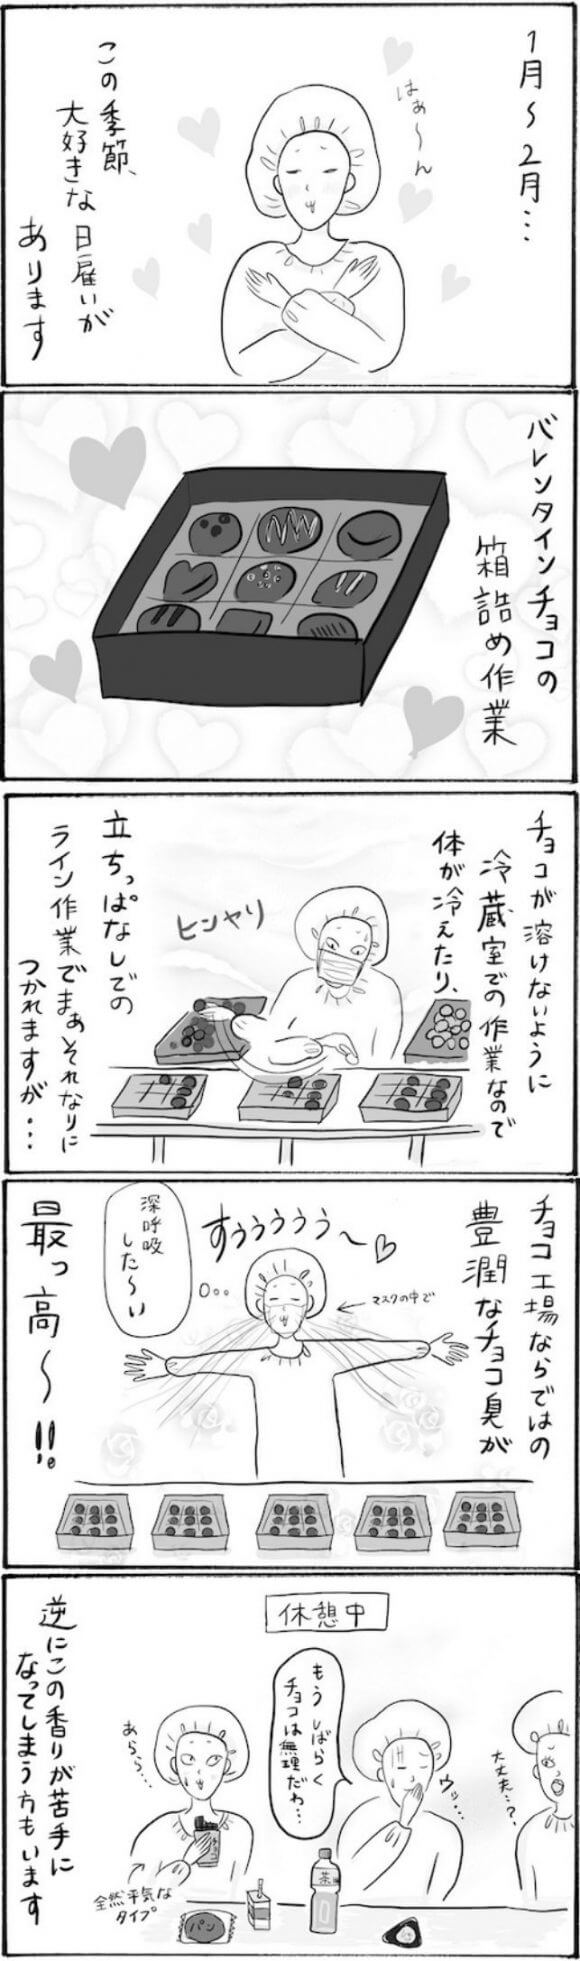 1月〜2月…
はぁ〜ん
この季節、
大好きな日雇いが
あります
バレンタインチョコの
箱詰め作業
チョコが溶けないように
冷蔵室での作業なので
体が冷えたり、
ヒンヤリ
立ちっぱなしでの
ライン作業でまぁそれなりに
つかれますが…
チョコ工場ならではの
豊潤なチョコ臭が
マスクの中で
すぅぅぅぅぅ〜
深呼吸
した〜い
最っ高〜!!
休憩中
大丈夫…?
ウッ…
もうしばらく
チョコは無理だわ…
あらら…
全然平気な
タイプ
パン
茶
逆にこの香りが苦手に
なってしまう方もいます